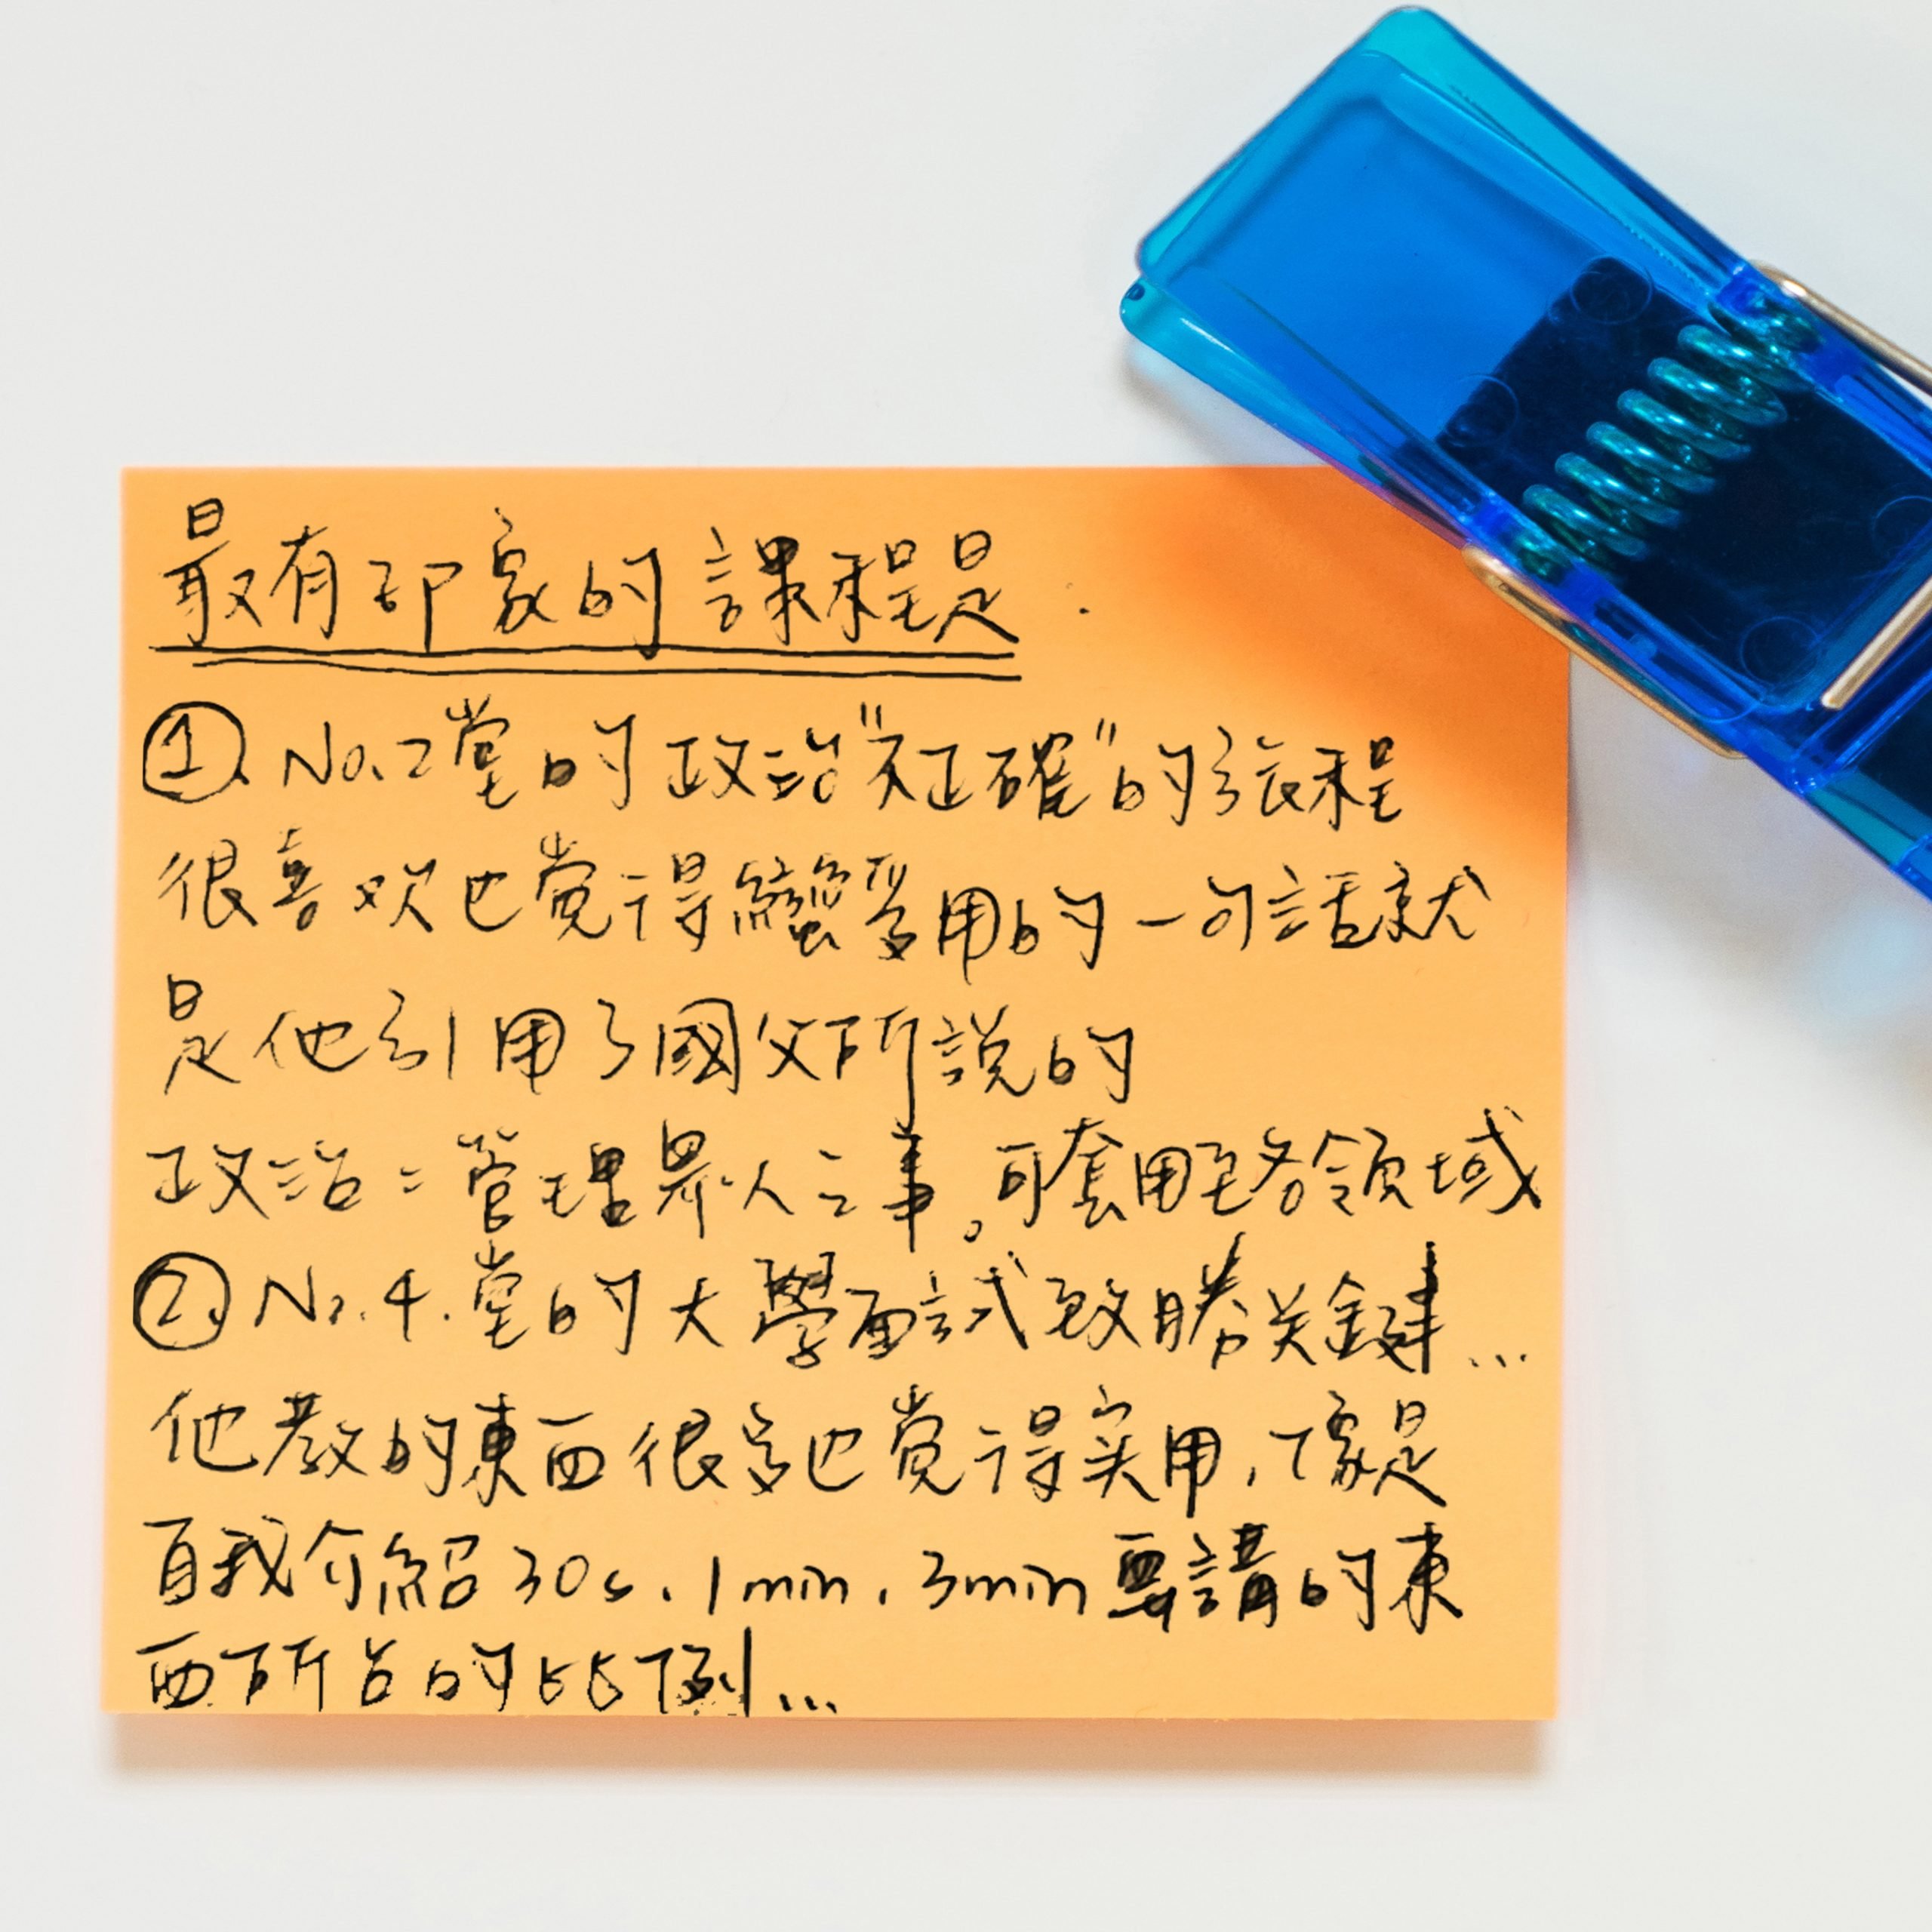 最有印象的課程是
①. No.2堂的政治"不正確"的議程
很喜欢也覚得蠻受用的一句話就
是他引用了國父所說的
政治=管理眾人之事。可套用至各領域
②. No.4.堂的大學面試致勝关鍵...
他教的東西很多也覚得実用,像是
自我介紹30s、1min、3min要講的東
西所占的比例...